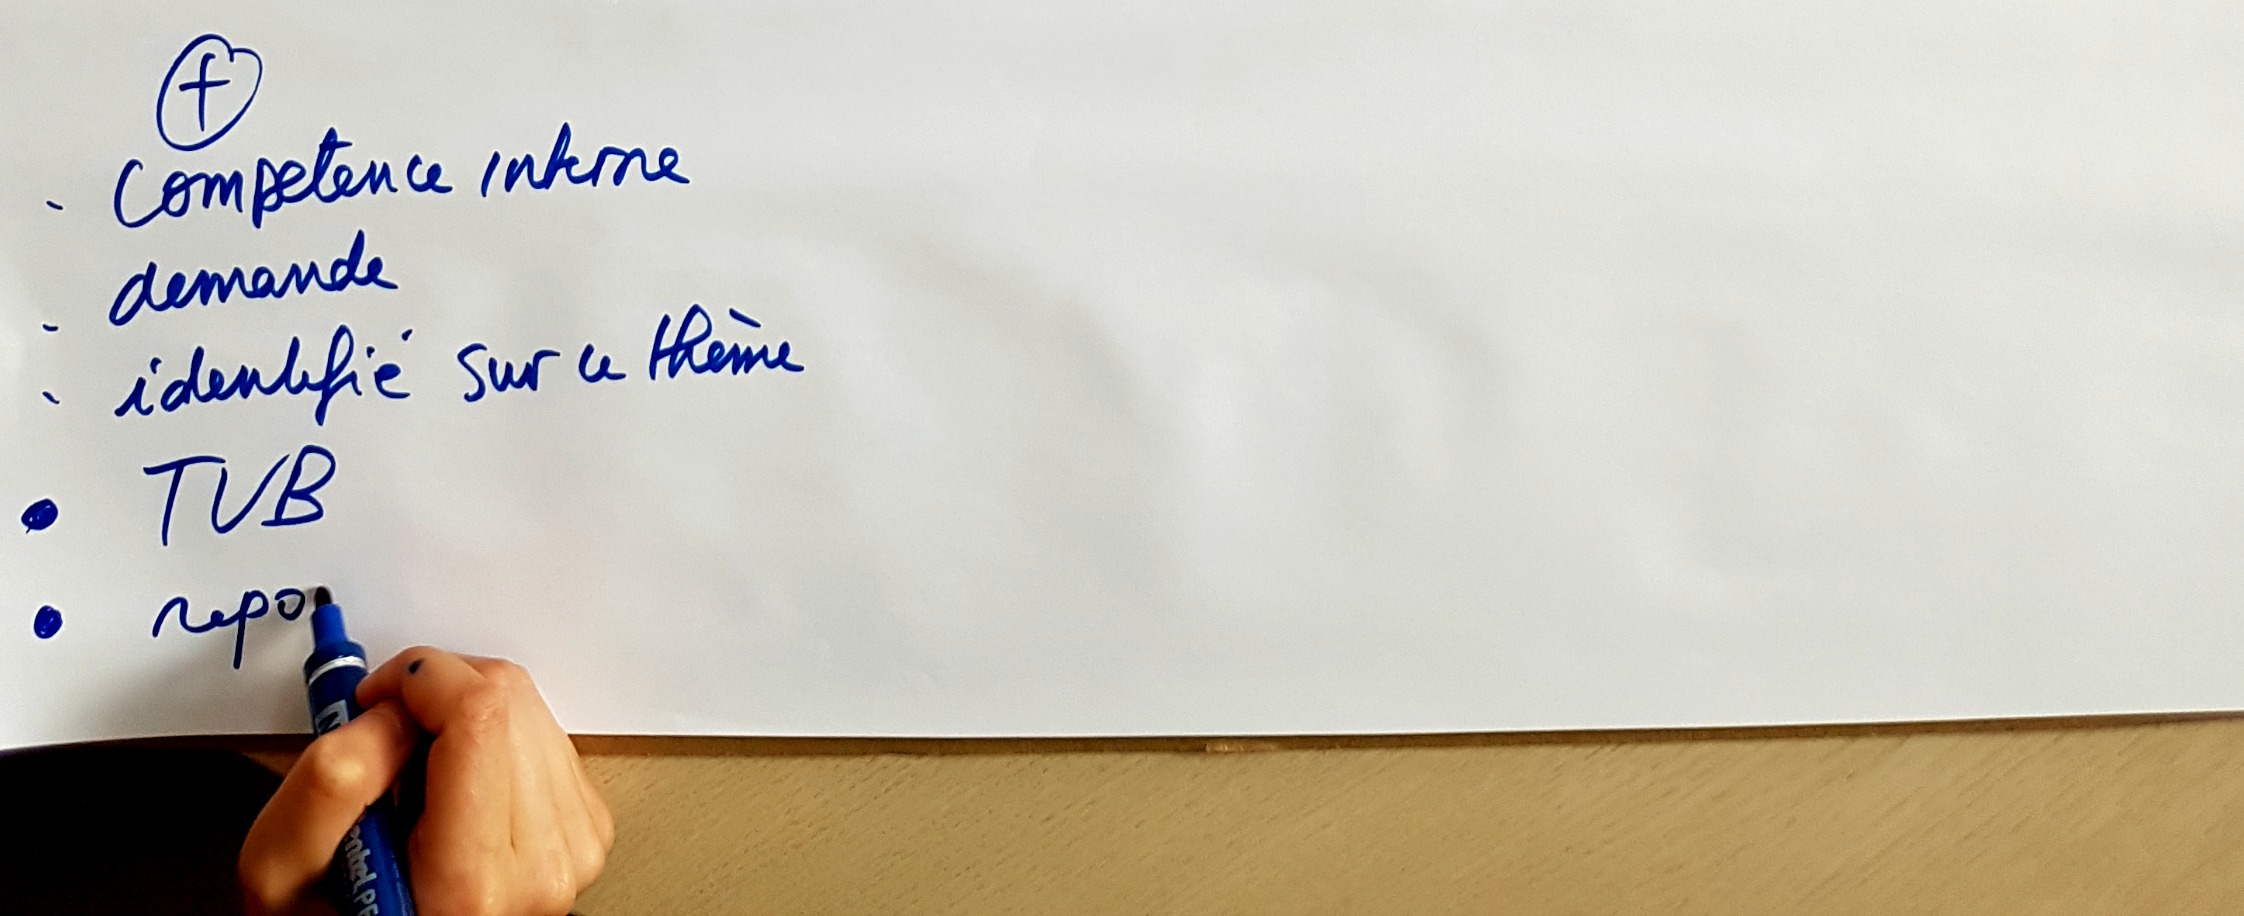 +
- Compétence interne
- demande
- identifié sur ce thème
• TVB
• repo
N
Pentel PE